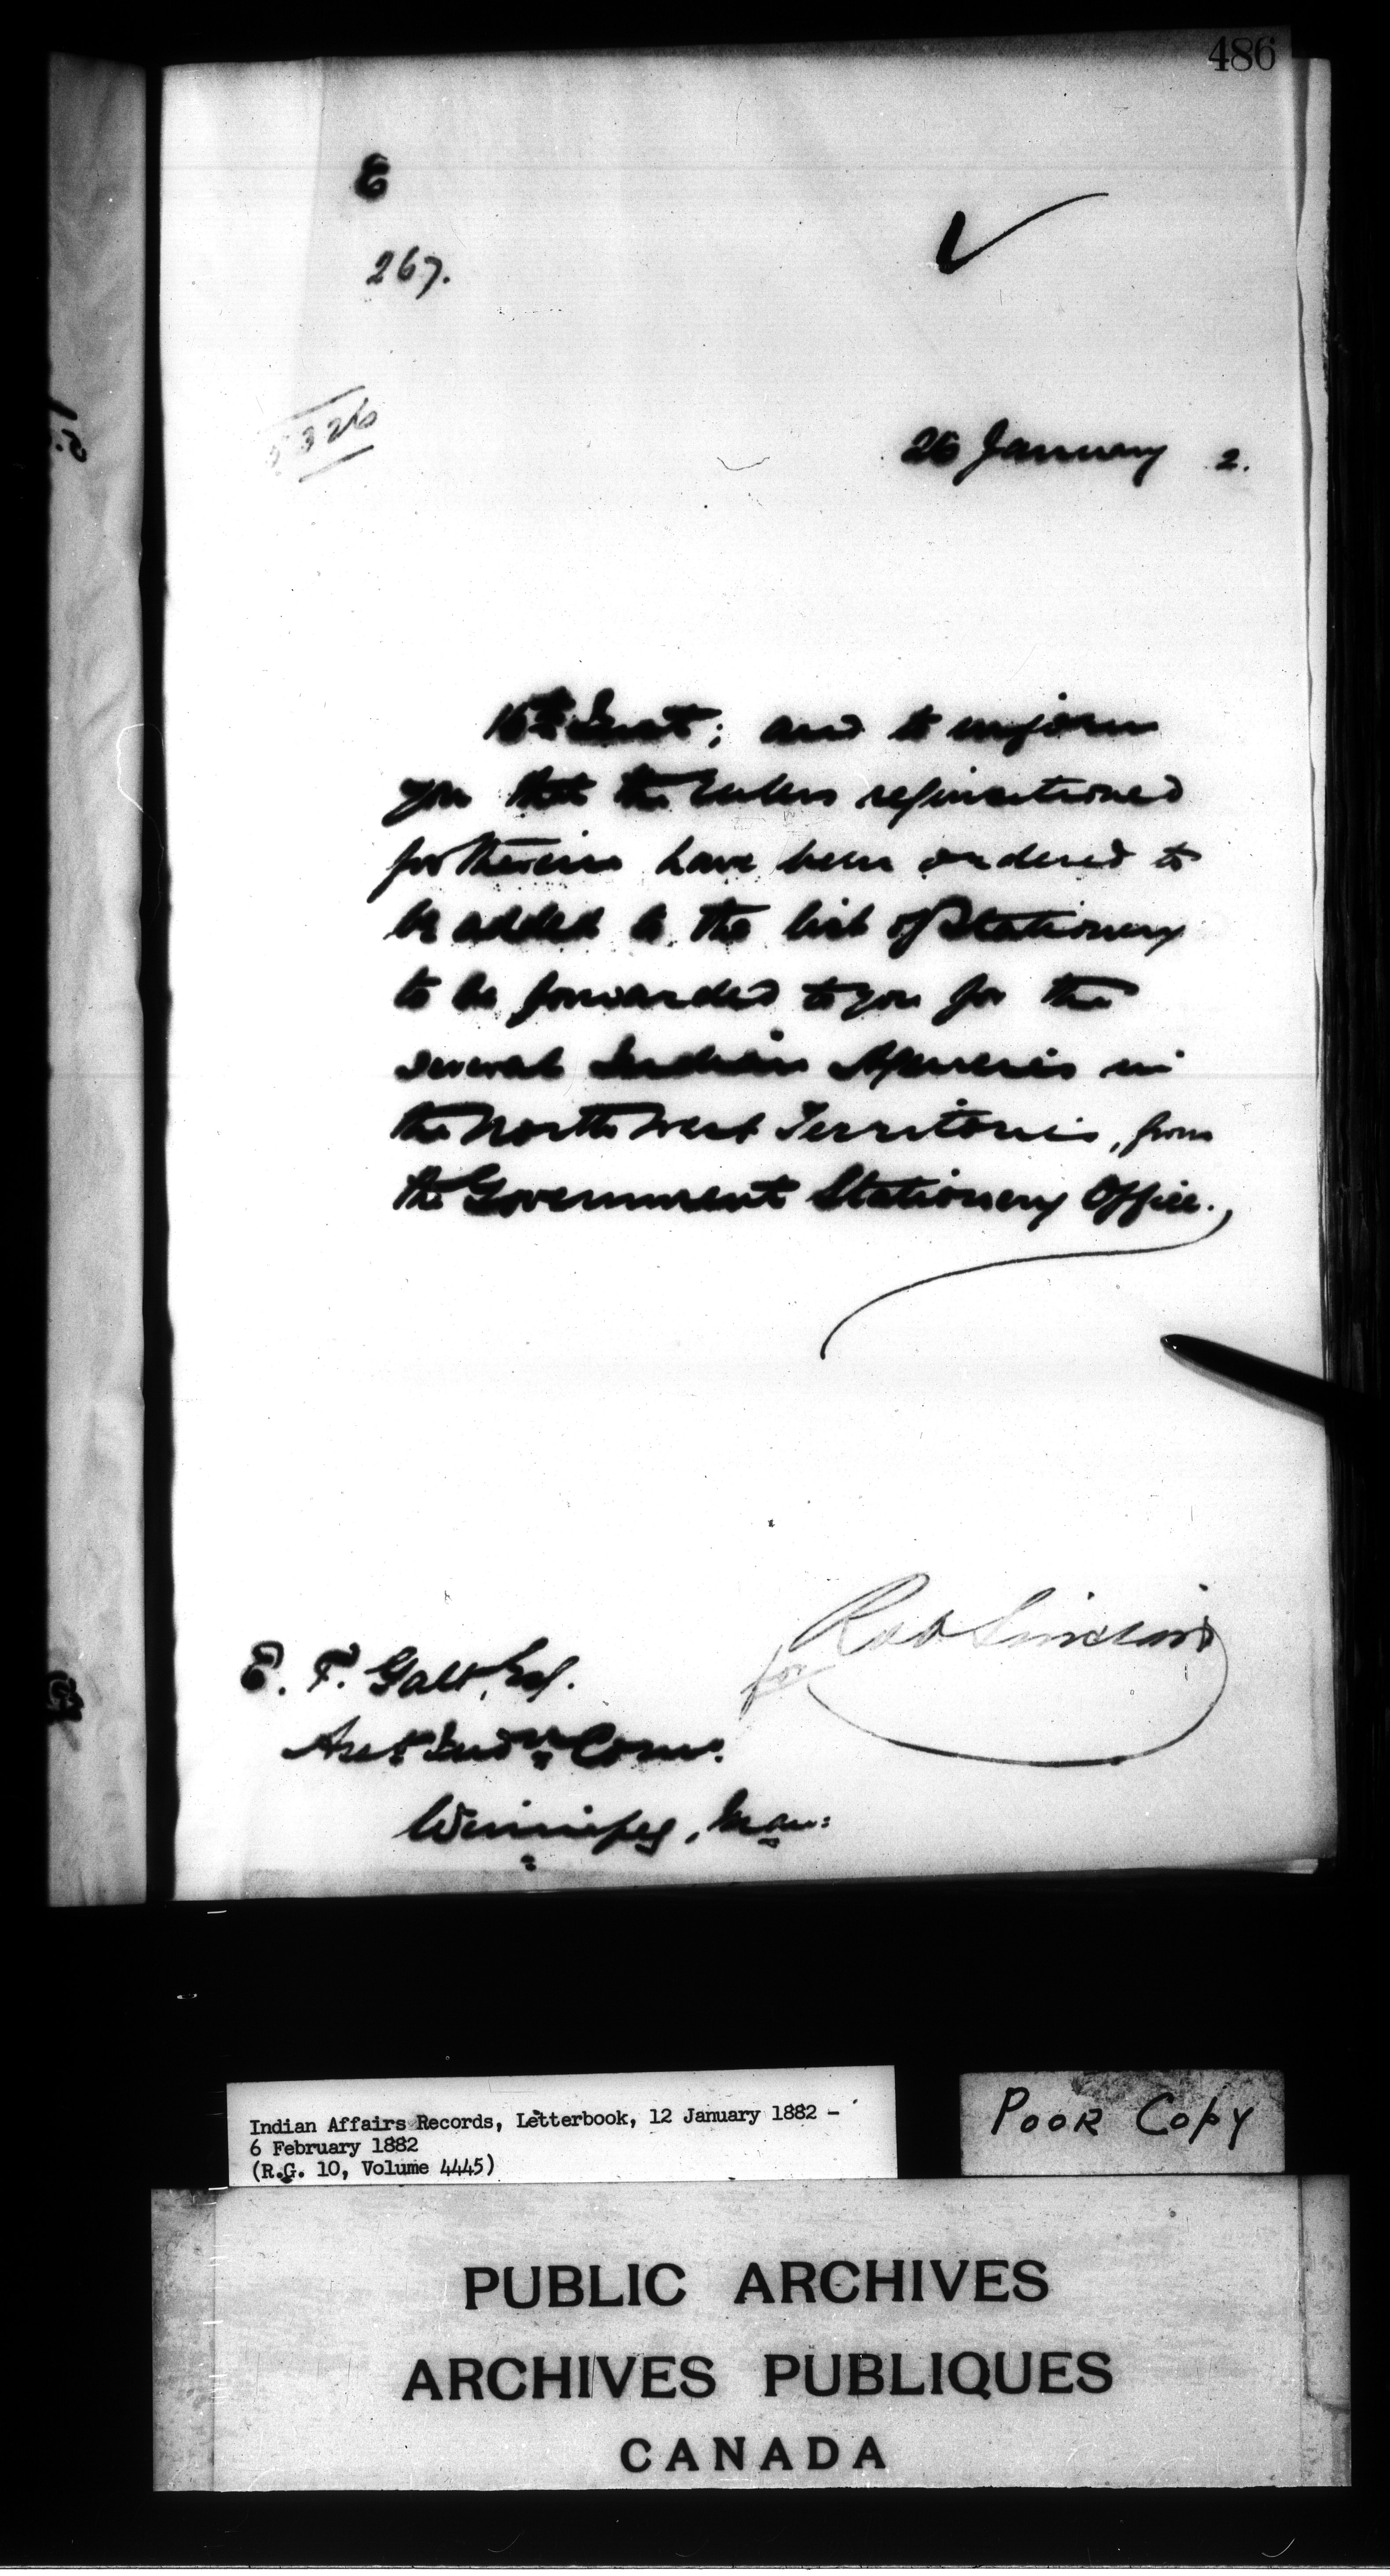 486
E
267.
26 January 2.
16th Inst; and to inform
you that the rulers requisitioned
for therein have been ordered to
be added to the list of Stationery
to be forwarded to you for the
several Indian Agencies in
the North West Territories, from
the Government Stationery Office.
Rob Sinclair
for
E. T. Galt, Esq.
Asst Indn Comr.
Winnipeg, Man:
Indian Affairs Records, Letterbook, 12 January 1882 -
6 February 1882
(R.G. 10, Volume 4445)
POOR COPY
PUBLIC ARCHIVES
ARCHIVES PUBLIQUES
CANADA